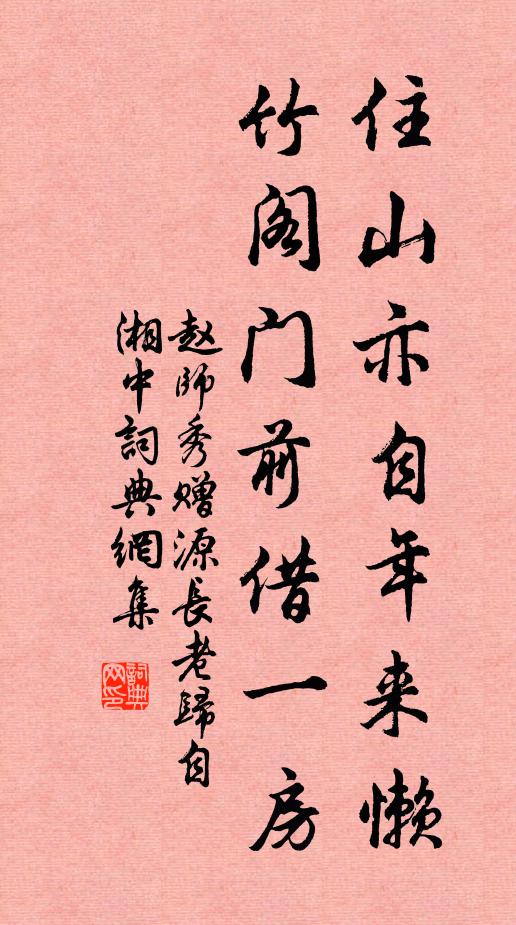 住山亦自年来懒
竹阁门前借一房
赵師秀赠源長老歸自
湘中詞典網集
詞典
网印